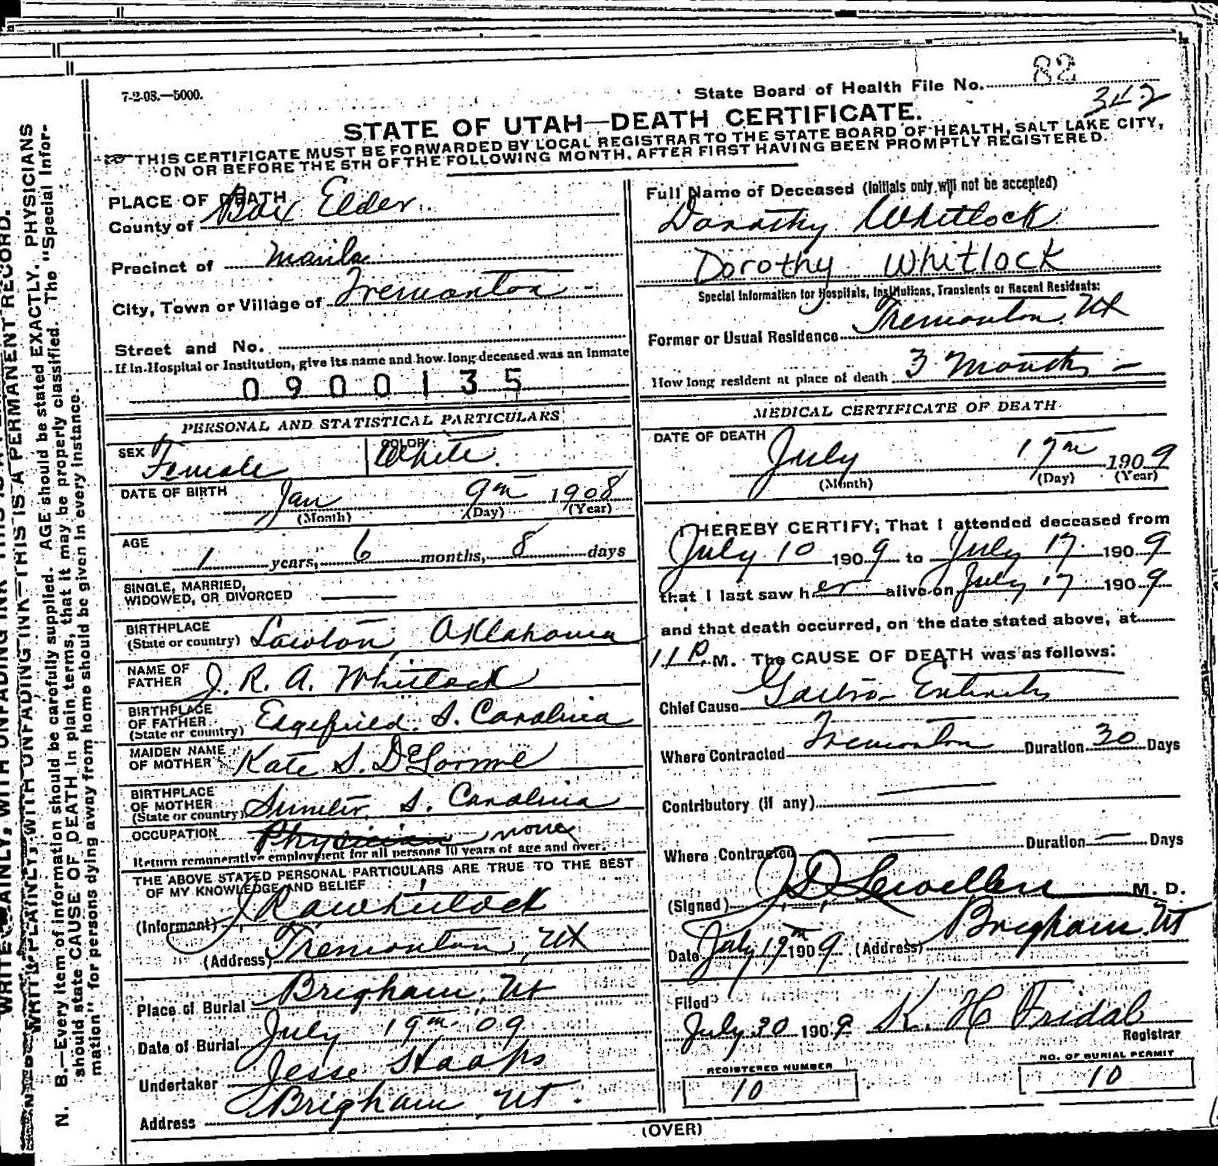 7-2-08.—5000.
State Board of Health File No. 82
342
STATE OF UTAH—DEATH CERTIFICATE.
THIS CERTIFICATE MUST BE FORWARDED BY LOCAL REGISTRAR TO THE STATE BOARD OF HEALTH, SALT LAKE CITY,
ON OR BEFORE THE 5TH OF THE FOLLOWING MONTH, AFTER FIRST HAVING BEEN PROMPTLY REGISTERED.
PLACE OF DEATH
County of Box Elder
Precinct of Manila
City, Town or Village of Tremonton
Street and No.
If in Hospital or Institution, give its name and how long deceased was an Inmate
0900135
PERSONAL AND STATISTICAL PARTICULARS
SEX Female COLOR White
DATE OF BIRTH Jan 9th 1908
(Month) (Day) (Year)
AGE 1 years, 6 months, 8 days
SINGLE, MARRIED,
WIDOWED, OR DIVORCED
BIRTHPLACE
(State or country) Lawton, Oklahoma
NAME OF
FATHER J. R. A. Whitlock
BIRTHPLACE
OF FATHER
(State or country) Edgefield S. Carolina
MAIDEN NAME
OF MOTHER Kate S. DeLorme
BIRTHPLACE
OF MOTHER
(State or country) Sumter, S. Carolina
OCCUPATION Physician none
Return remunerative employment for all persons 10 years of age and over.
THE ABOVE STATED PERSONAL PARTICULARS ARE TRUE TO THE BEST
OF MY KNOWLEDGE AND BELIEF
(Informant) J R A Whitlock
(Address) Tremonton, Ut
Place of Burial Brigham, Ut
Date of Burial July 19th 09
Undertaker Jesse
Address Brigham, Ut.
Full Name of Deceased (Initials only will not be accepted)
Dorothy Whitlock
Dorothy Whitlock
Special Information for Hospitals, Institutions, Transients or Recent Residents:
Former or Usual Residence Tremonton, Ut
How long resident at place of death 3 Months
MEDICAL CERTIFICATE OF DEATH
DATE OF DEATH July 17th 1909
(Month) (Day) (Year)
I HEREBY CERTIFY, That I attended deceased from
July 10 1909 to July 17. 1909
that I last saw her alive on July 17 1909
and that death occurred, on the date stated above, at
11 P. M. The CAUSE OF DEATH was as follows:
Chief Cause Gastro-Enteritis
Where Contracted Tremonton Duration 30 Days
Contributory (if any)
Where Contracted Duration — Days
(Signed) M. D.
Date July 19th 1909 (Address) Brigham Ut
Filed
July 20 1909 K. H. Fridal
Registrar
REGISTERED NUMBER
10
NO. OF BURIAL PERMIT
10
(OVER)
WRITE PLAINLY, WITH UNFADING INK—THIS IS A PERMANENT RECORD.
N. B.—Every item of information should be carefully supplied. AGE should be stated EXACTLY. PHYSICIANS
should state CAUSE OF DEATH in plain terms, that it may be properly classified. The "Special Infor-
mation" for persons dying away from home should be given in every instance.